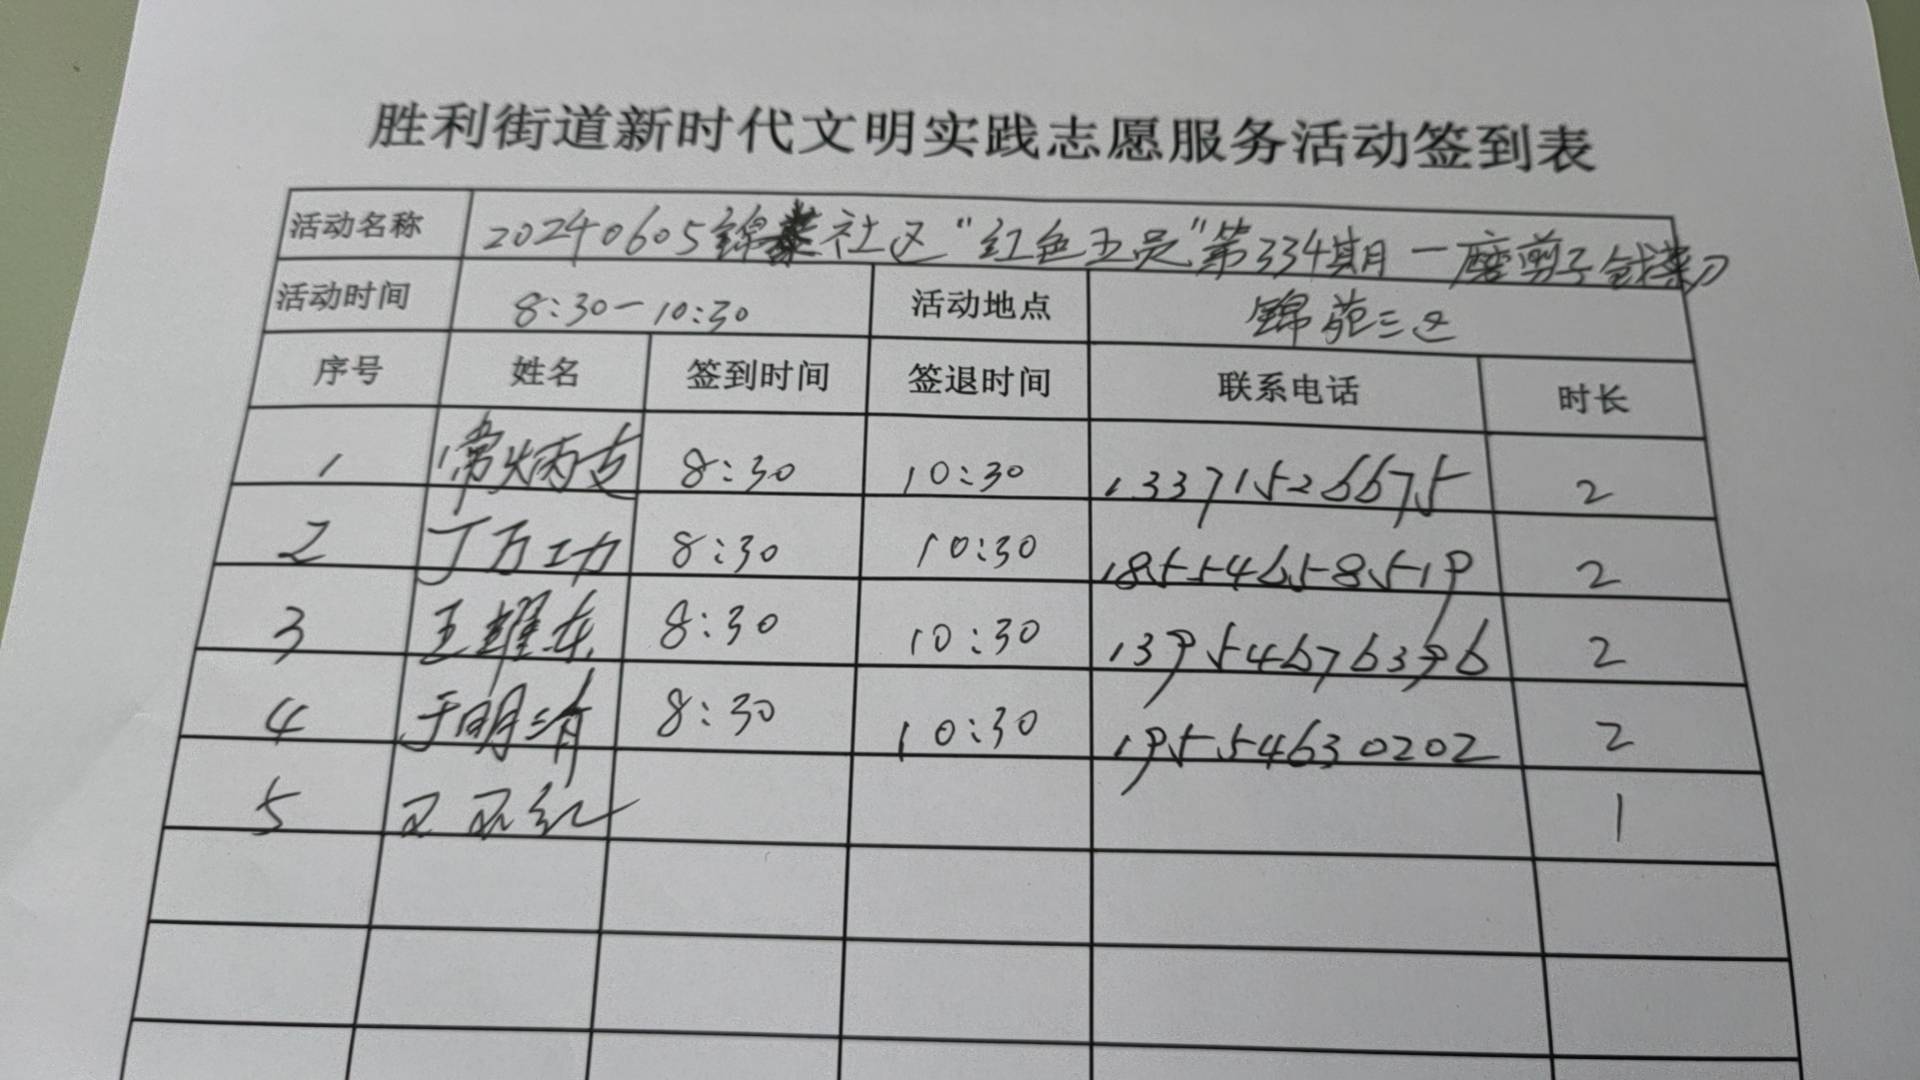 胜利街道新时代文明实践志愿服务活动签到表
活动名称 20240605锦 社区“红色 员”第334期一磨剪子 菜刀
活动时间 8:30-10:30 活动地点 锦苑三区
序号 姓名 签到时间 签退时间 联系电话 时长
1 常炳 8:30 10:30 13371526675 2
2 丁万功 8:30 10:30 18554658519 2
3 王耀东 8:30 10:30 13954676396 2
4 于明 8:30 10:30 19554630202 2
5 红 1